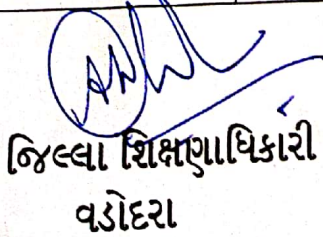 જિલ્લા શિક્ષણાધિકારી
વડોદરા